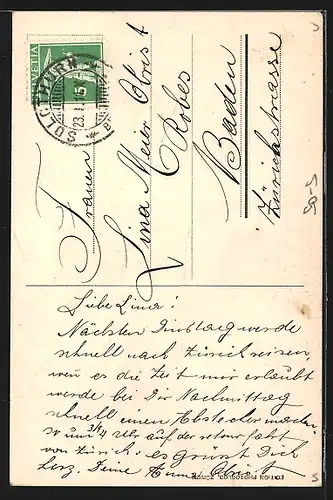 HELVETIA
SOLOTHURN
23. I. 15
Frauen
Lina Meier Christ
Robes
Baden
Zürichstrasse
Liebe Lina!
Nächsten Dinstag werde
schnell nach Zürich reisen,
wen es die Zeit mir erlaubt
werde bei Dir Nachmittag
schnell einen Abstecher machen
so um 3/4 4 Uhr auf der retour fahrt
von Zürich. es grüsst Dich
herz. Deine